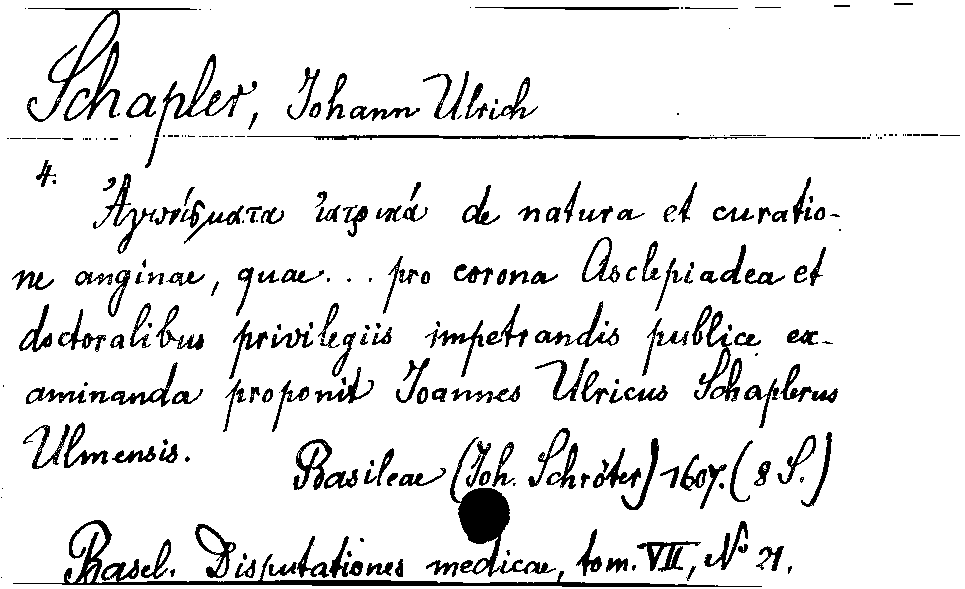 Schapler, Johann Ulrich
4.
Ἀγωνίσματα ἰατρικά de natura et curatio-
ne anginae, quae... pro corona Asclepiadea et
doctoralibus privilegiis impetrandis publice ex-
aminanda proponit Joannes Ulricus Schaplerus
Ulmensis.
Basileae (Joh. Schröter) 1607. (8 S.)
Basel. Disputationes medicae, tom. VII, No 21.